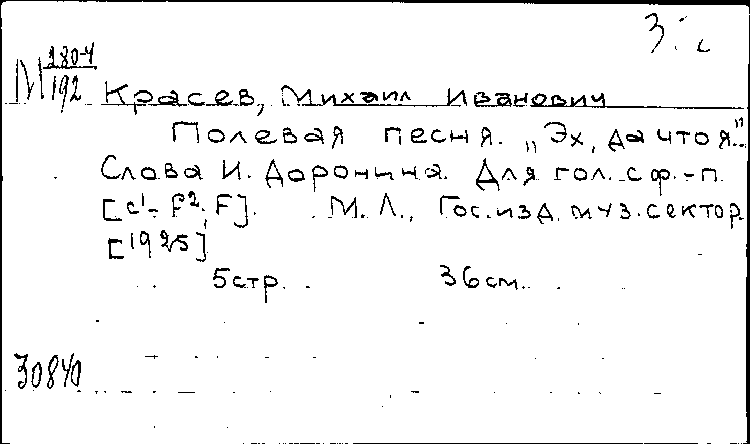 3
M 180-4
192
Красев, Михаил Иванович
Полевая песня. „Эх, да что я".
Слова И. Доронина. Для гол. с ф.-п.
[c¹- f²; F]. М. Л., Гос. изд. муз. сектор.
[1925]
5 стр. 36 см.
30840